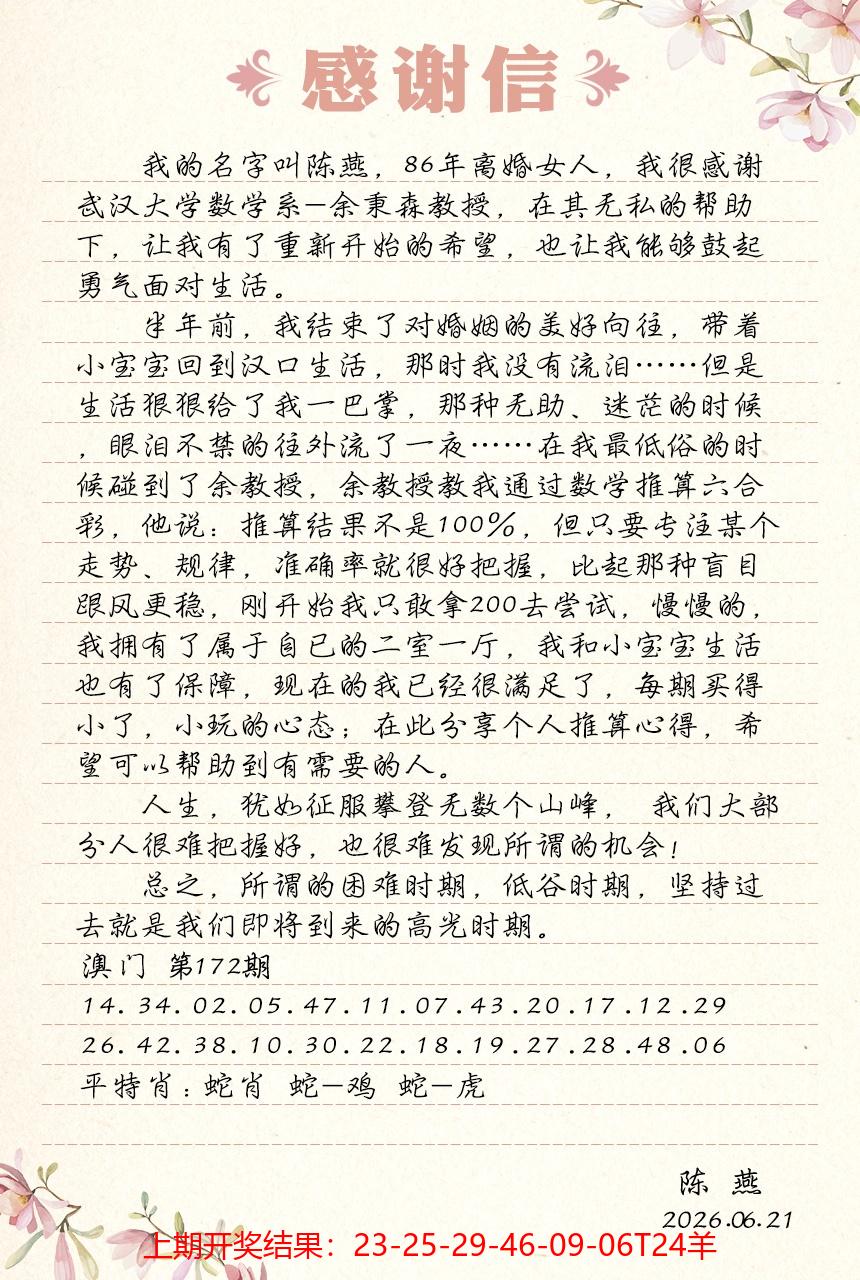 感谢信
我的名字叫陈燕，86年离婚女人，我很感谢
武汉大学数学系—余秉森教授，在其无私的帮助
下，让我有了重新开始的希望，也让我能够鼓起
勇气面对生活。
半年前，我结束了对婚姻的美好向往，带着
小宝宝回到汉口生活，那时我没有流泪……但是
生活狠狠给了我一巴掌，那种无助、迷茫的时候
，眼泪不禁的往外流了一夜……在我最低俗的时
候碰到了余教授，余教授教我通过数学推算六合
彩，他说：推算结果不是100%，但只要专注某个
走势、规律，准确率就很好把握，比起那种盲目
跟风更稳，刚开始我只敢拿200去尝试，慢慢的，
我拥有了属于自已的二室一厅，我和小宝宝生活
也有了保障，现在的我已经很满足了，每期买得
小了，小玩的心态；在此分享个人推算心得，希
望可以帮助到有需要的人。
人生，犹如征服攀登无数个山峰， 我们大部
分人很难把握好，也很难发现所谓的机会！
总之，所谓的困难时期，低谷时期，坚持过
去就是我们即将到来的高光时期。
澳门 第172期
14.34.02.05.47.11.07.43.20.17.12.29
26.42.38.10.30.22.18.19.27.28.48.06
平特肖：蛇肖 蛇—鸡 蛇—虎
陈 燕
2026.06.21
上期开奖结果：23-25-29-46-09-06T24羊